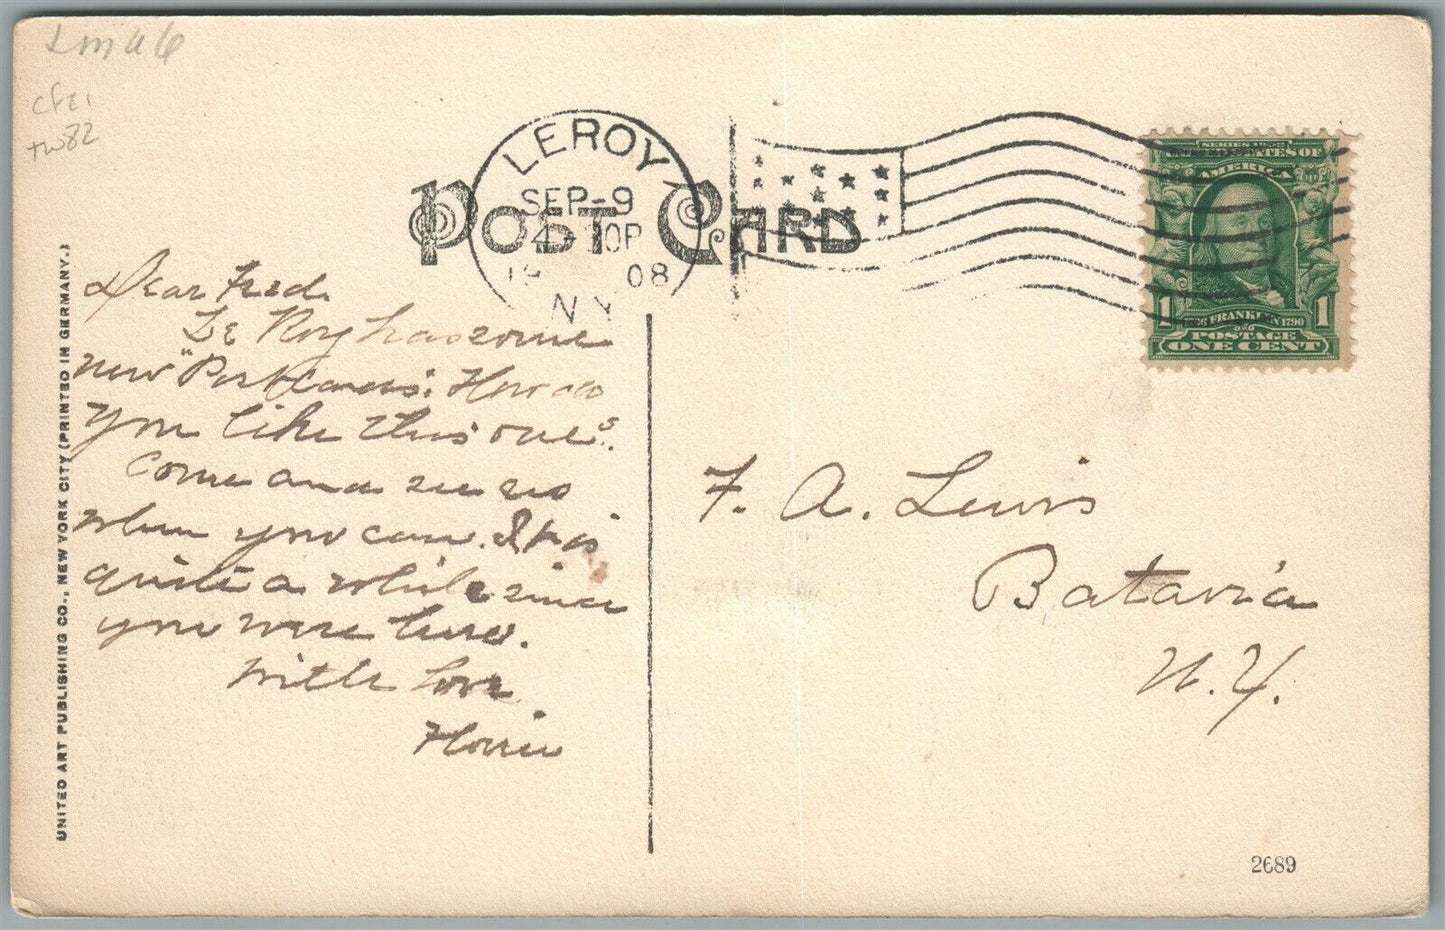 LEROY
SEP-9
08
N.Y.
POST CARD
SERIES 1902
AMERICA
FRANKLIN 1790
POSTAGE
ONE CENT
1 1
Dear Fred.
Le Roy has some
new "Postcards". How do
you like this one?
Come and see us
when you can. It is
quite a while since
you were here.
With Love
F. A. Lewis
Batavia
N. Y.
UNITED ART PUBLISHING CO., NEW YORK CITY (PRINTED IN GERMANY.)
2689
tw82